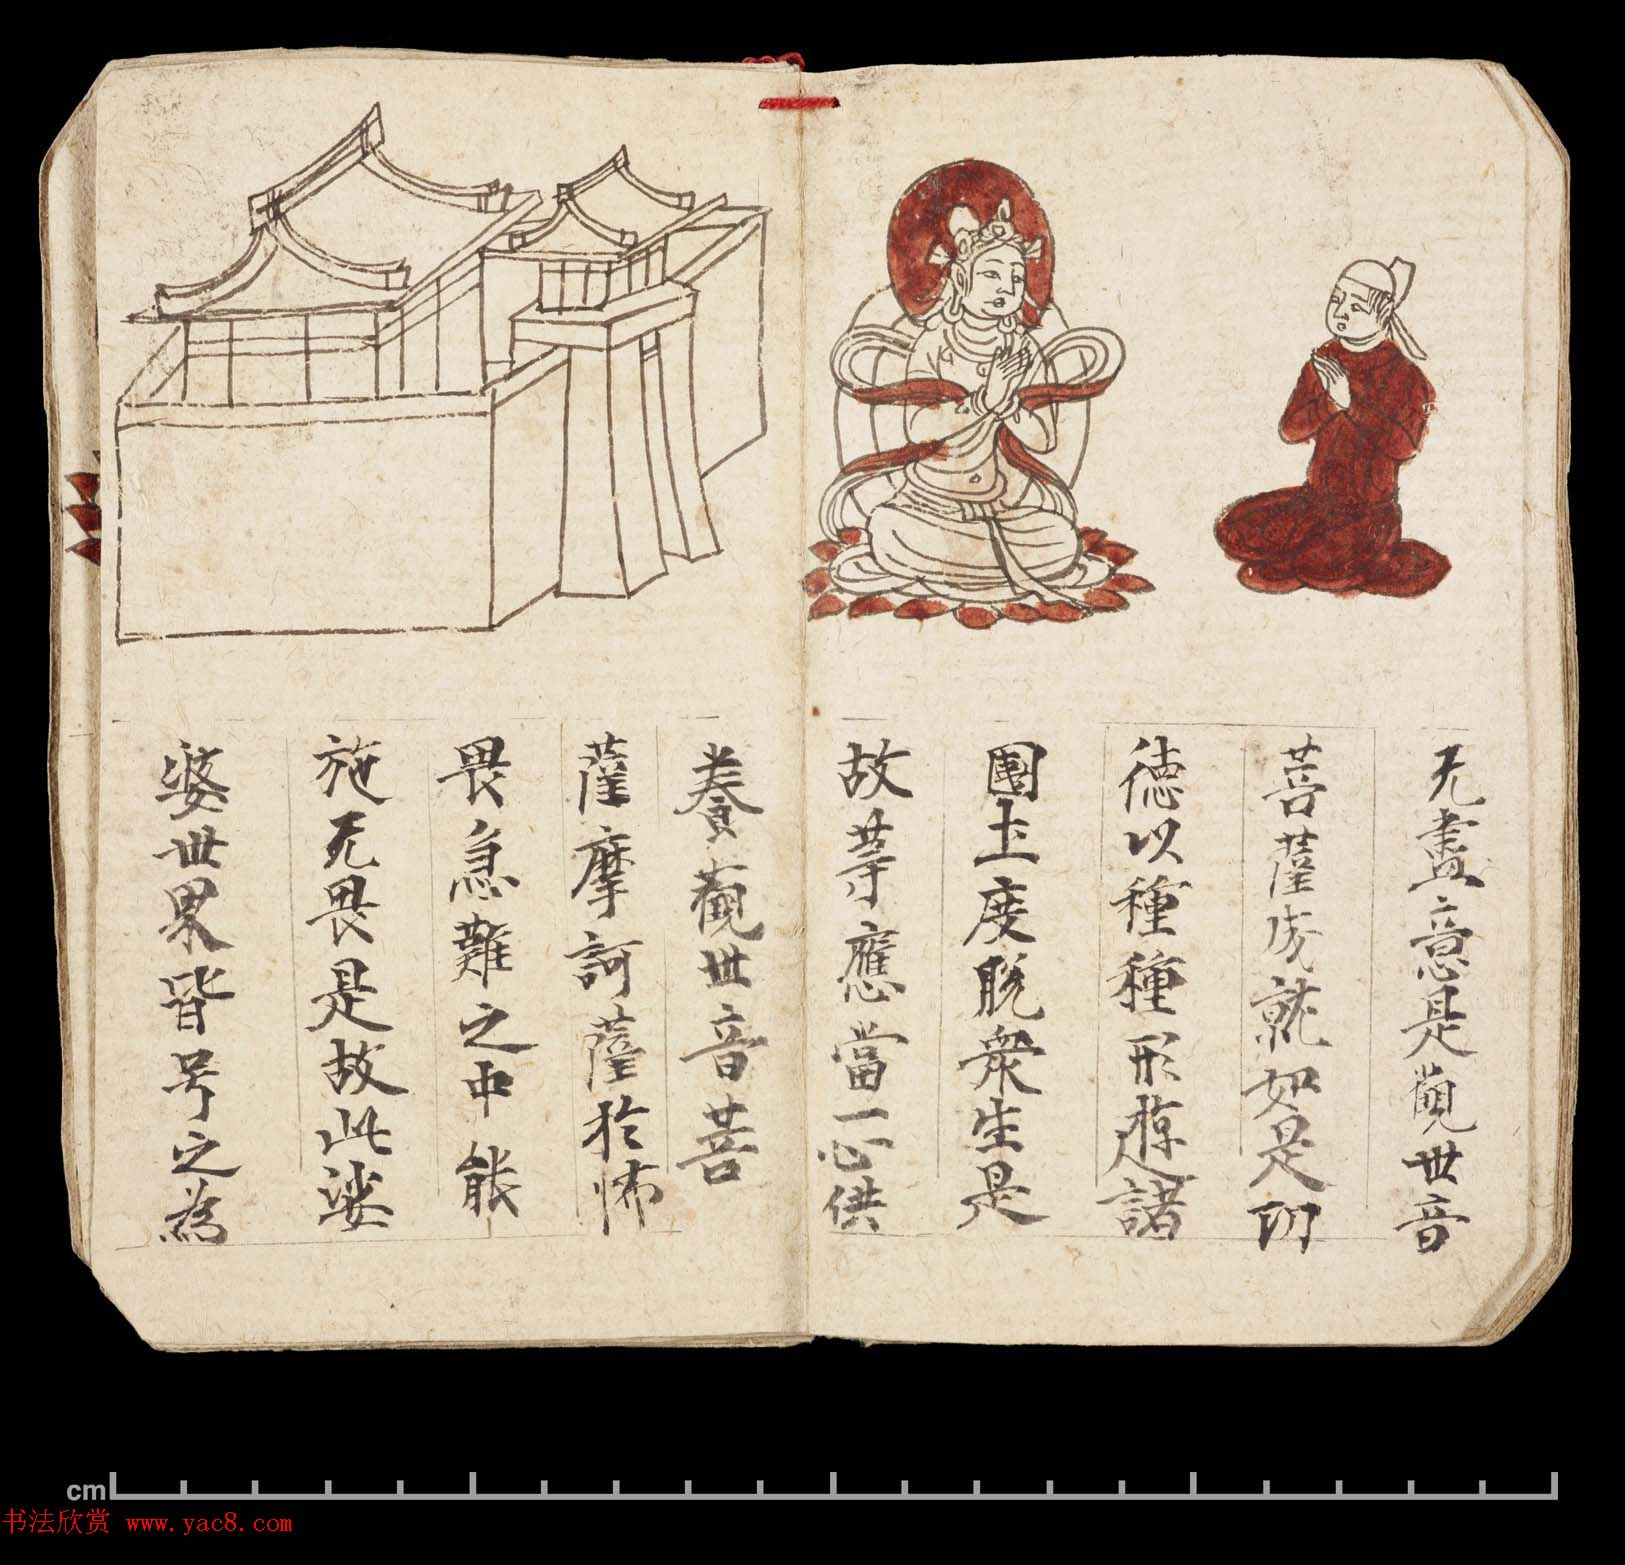 无盡意是觀世音
菩薩成就如是功
德以種種形遊諸
國土度脫衆生是
故等應當一心供
養觀世音菩
薩摩訶薩於怖
畏急難之中能
施无畏是故此娑
婆世界皆号之為
cm
书法欣赏 www.yac8.com